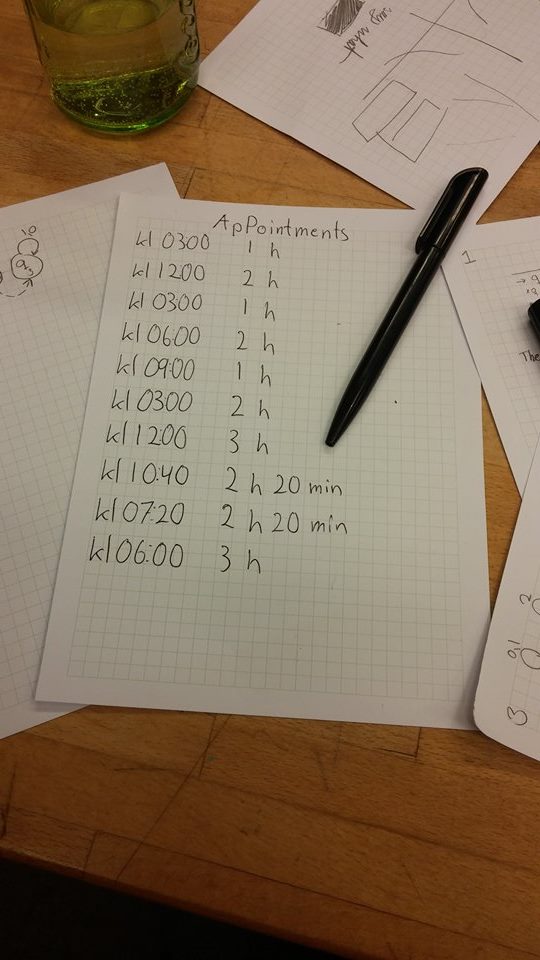 AppointmentS
kl 0300 1 h
kl 1200 2 h
kl 0300 1 h
kl 06:00 2 h
kl 09:00 1 h
kl 0300 2 h
kl 1200 3 h
kl 10:40 2 h 20 min
kl 07:20 2 h 20 min
kl 06:00 3 h
10
q3
1
The
2
0,1
3